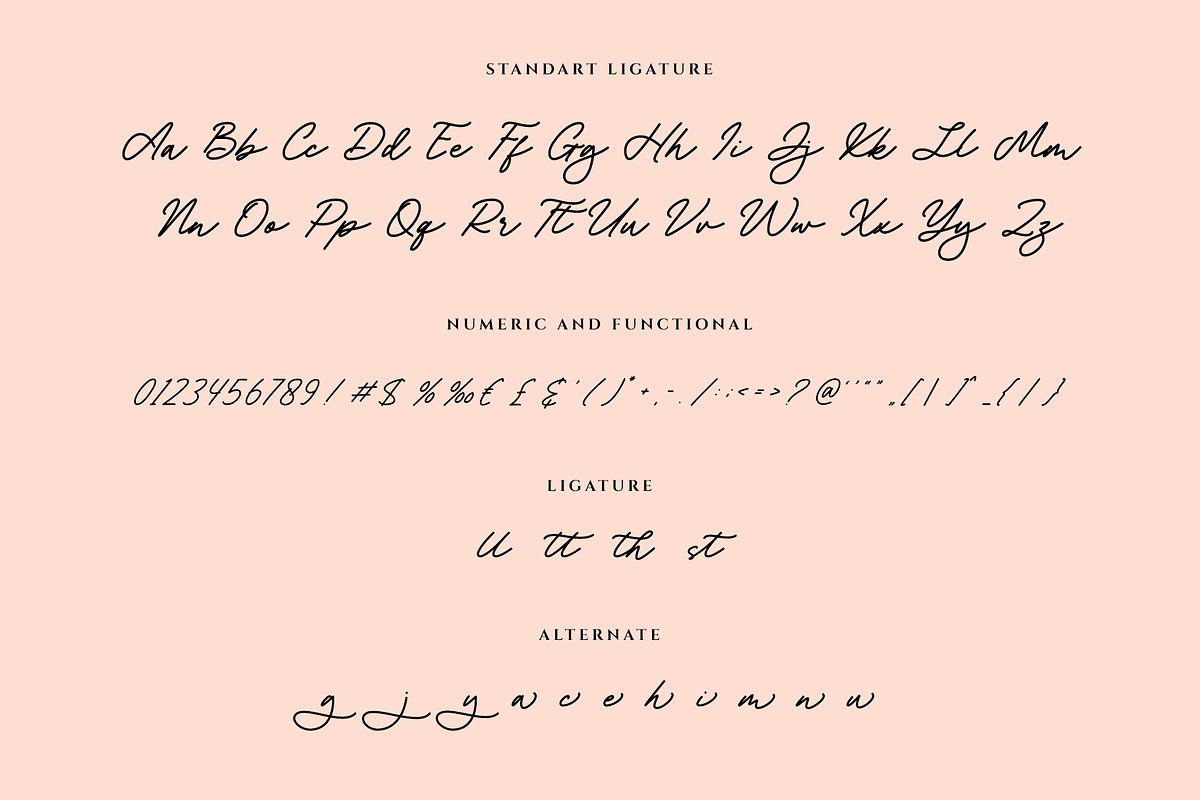 STANDART LIGATURE
Aa Bb Cc Dd Ee Ff Gg Hh Ii Jj Kk Ll Mm
Nn Oo Pp Qq Rr Tt Uu Vv Ww Xx Yy Zz
NUMERIC AND FUNCTIONAL
0123456789! #$ %‰€ £ &'()*+,-./:;<=>?@‘’“”„[|]^_{|}
LIGATURE
ll tt th st
ALTERNATE
g j y a c e h i m n u